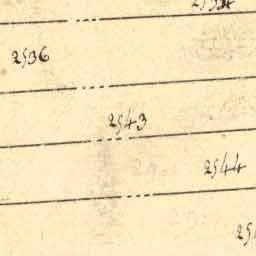 2536
2543
2544